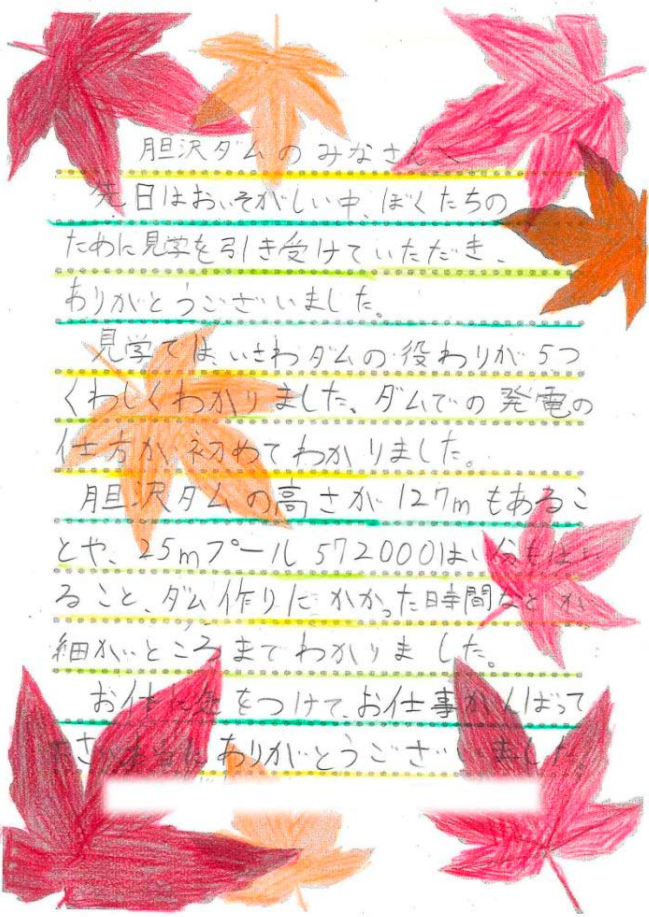 胆沢ダムのみなさんへ
先日はおいそがしい中、ぼくたちの
ために見学を引き受けていただき、
ありがとうございました。
見学では、いさわダムの役わりが5つ
くわしくわかりました、ダムでの発電の
仕方が初めてわかりました。
胆沢ダムの高さが127mもあるこ
とや、25mプール572000はい分もはい
ること、ダム作りにかかった時間などが
細かいところまでわかりました。
お体に気をつけて、お仕事がんばって
本当にありがとうございました。